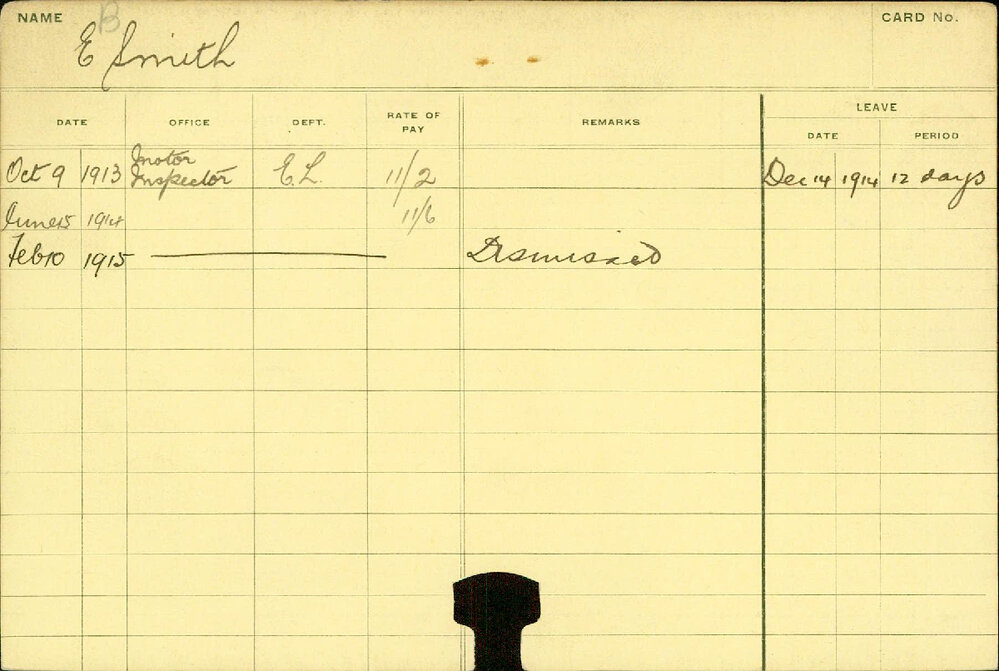 NAME B CARD No.
E Smith
LEAVE
DATE OFFICE DEPT. RATE OF PAY REMARKS DATE PERIOD
Oct 9 1913 Motor Inspector E.L. 11/2 Dec 14 1914 12 days
June 15 1914 11/6
Feb 10 1915 Dismissed